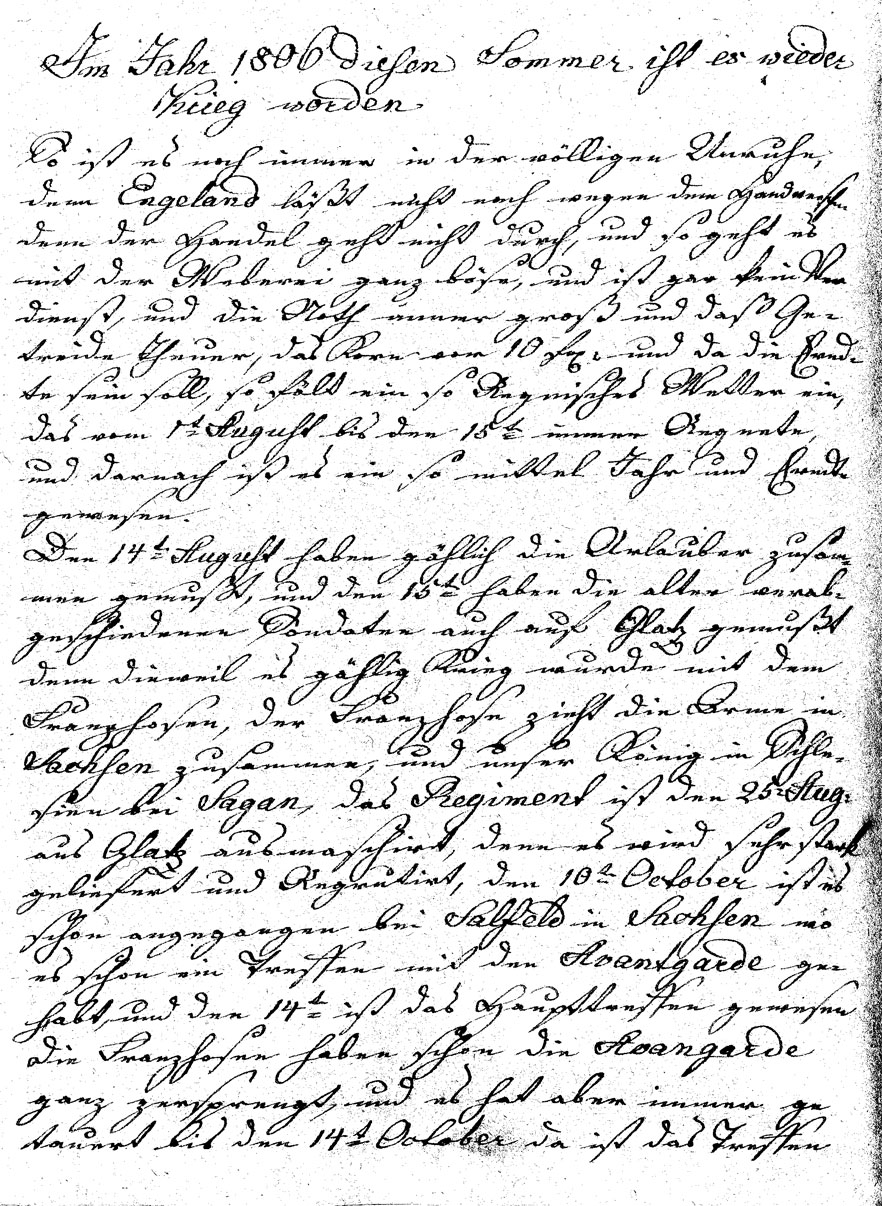 Im Jahr 1806 diesen Sommer ist es wieder
Krieg worden
So ist es noch immer in der völligen Unruhe,
denn Engeland läßt nicht nach wegen dem
denn der Handel geht nicht durch, und so geht es
mit der Weberei ganz böse, und ist gar kein Ver
dienst, und die Noth immer groß und daß Ge-
treide Theuer, das Korn vor 10 und da die Ernd-
te sein soll, so fält ein so Regnisches Wetter ein,
das vom 1t August bis den 15t immer Regnete,
und darnach ist es ein so mittel Jahr und Erndte
gewesen.
Den 14t August haben gählich die Urlauber zusam-
men gemußt, und den 15t haben die alten verab-
geschiedenen Soldaten auch auf Glatz gemußt
denn dieweil es gählig Krieg wurde mit dem
Franzhosen, der Franzhose zieht die Arme in
Sachsen zusammen, und unser König in Schle-
sien bei Sagan, das Regiment ist den 25t Aug:
aus Glatz ausmaschirt, denn es wird sehr stark
geliefert und Regrutirt, den 10t October ist es
schon angegangen bei Salfeld in Sachsen wo
es schon ein Treffen mit den Avantgarde ge-
habt, und den 14t ist das Haupttreffen gewesen
die Franzhosen haben schon die Avangarde
ganz zersprengt, und es hat aber immer ge
tauert bis den 14t October da ist das Treffen